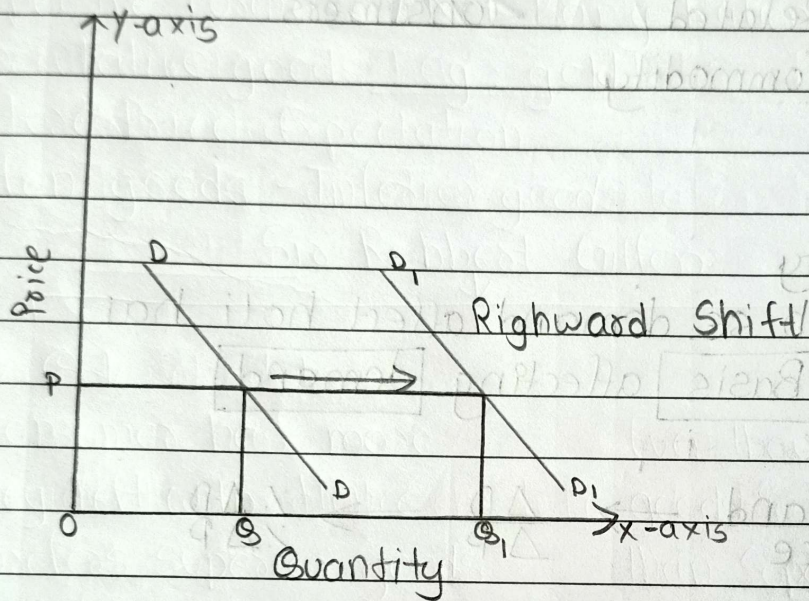 Y-axis
D D1
Price
Righward Shift
P
D D1
O Q Q1 X-axis
Quantity